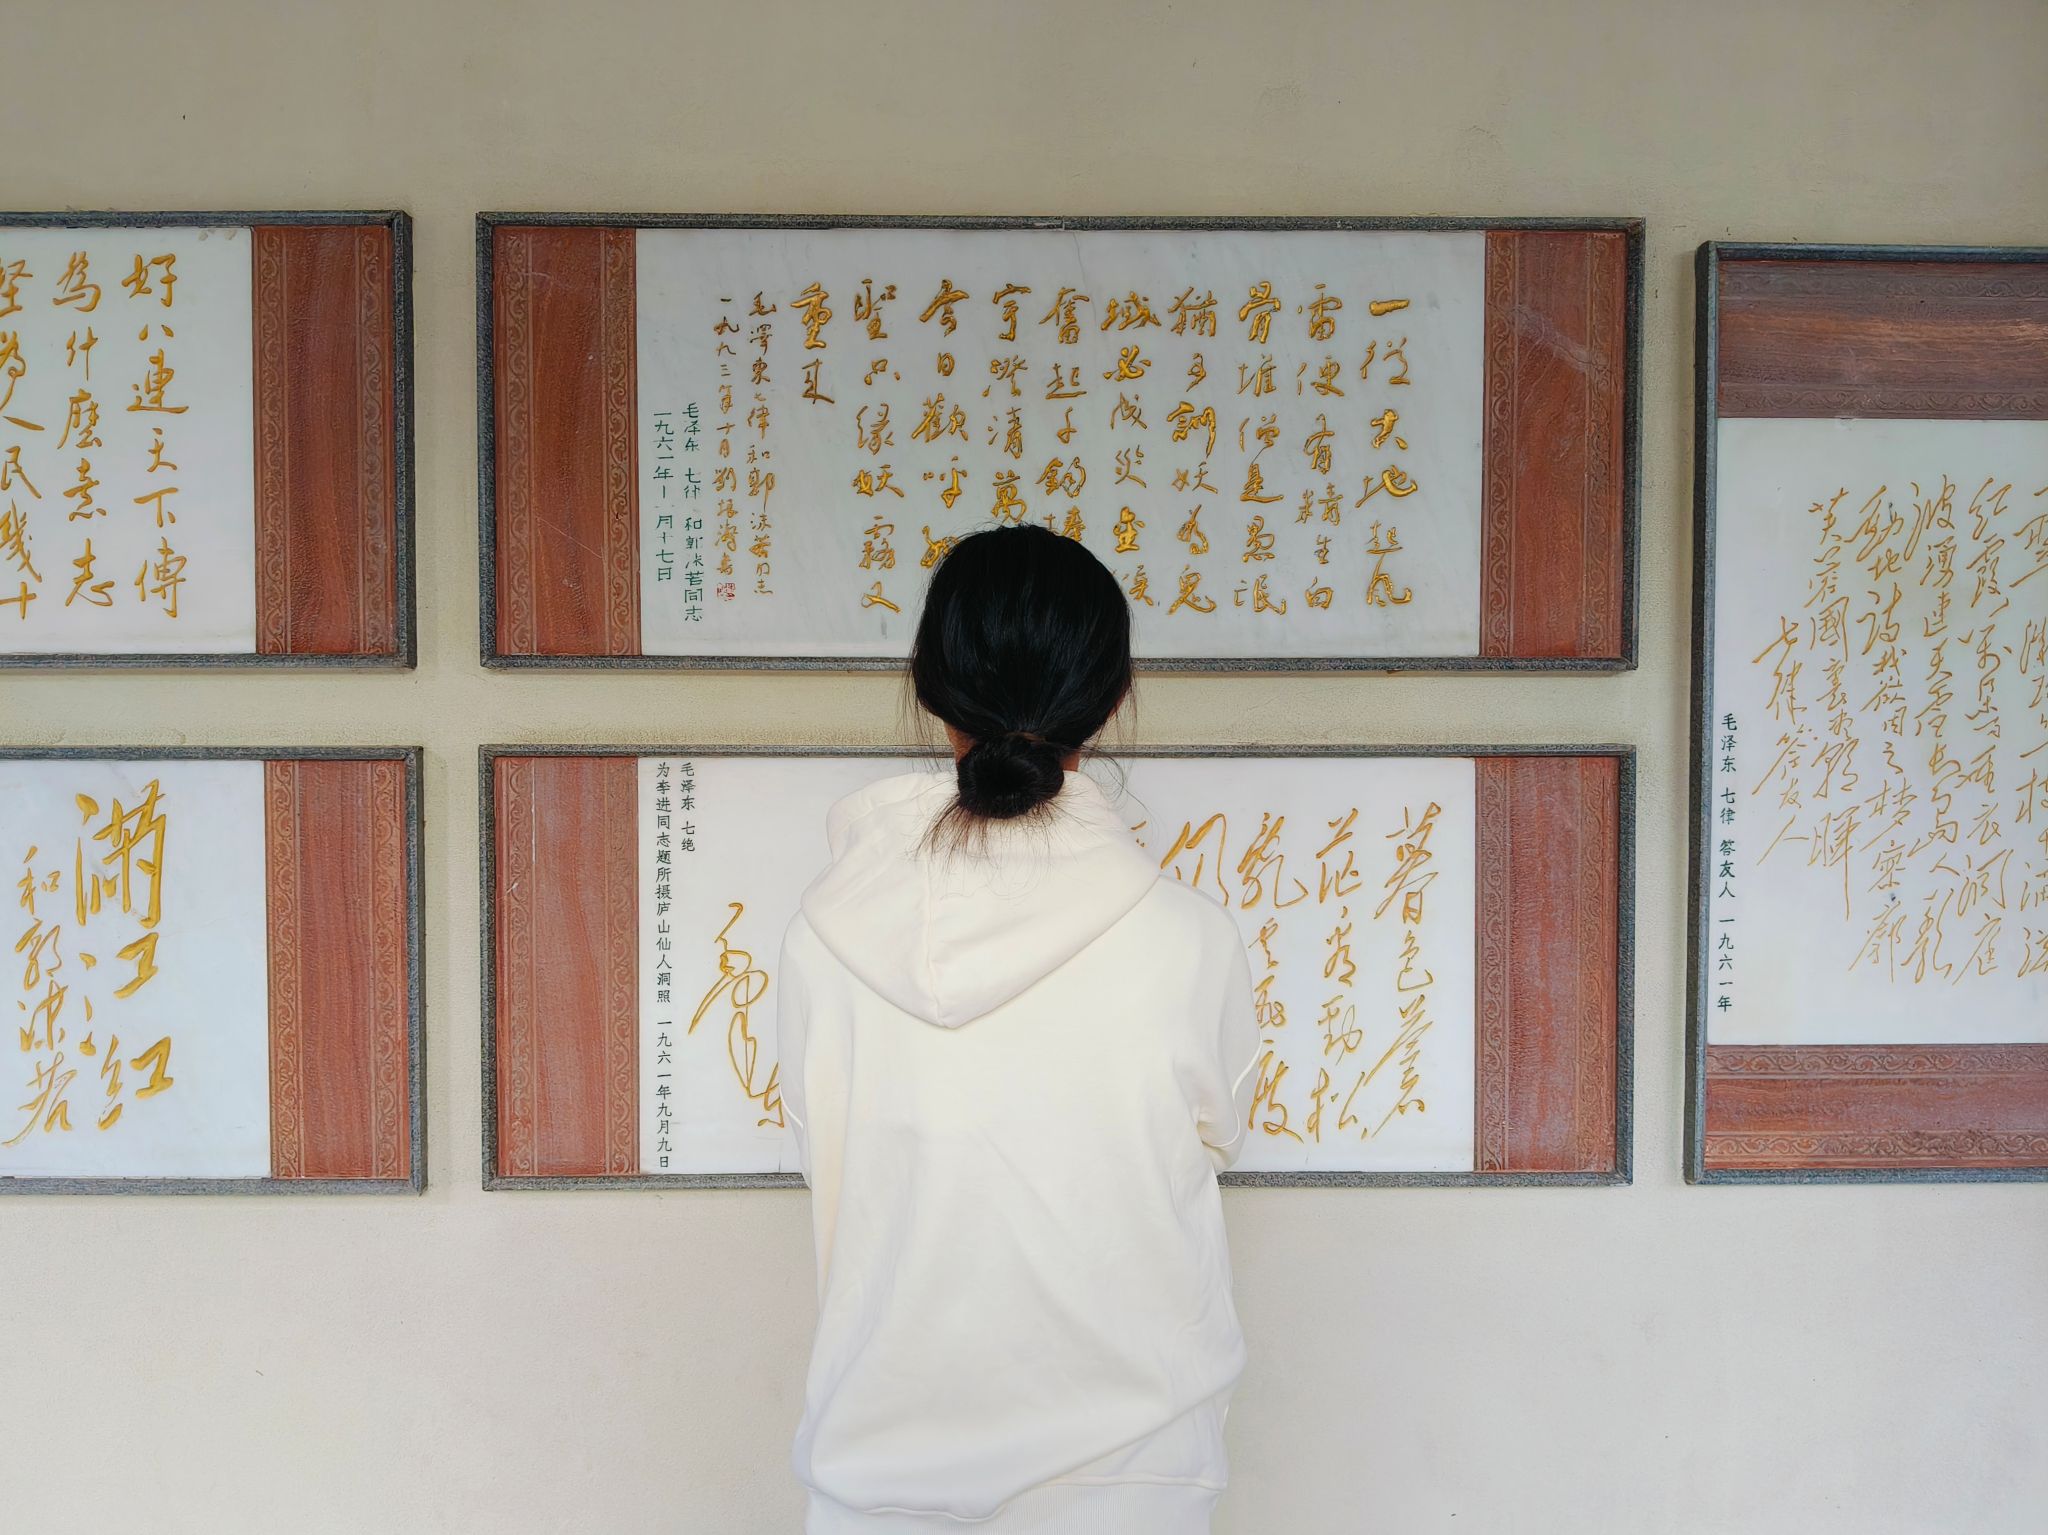 一從大地起風
雷便有精生白
骨堆僧是愚氓
猶可訓妖為鬼
蜮必成災金猴
奮起千鈞棒
宇澄清萬
今日歡呼孫
聖只緣妖霧又
重來
毛澤東七律和郭沫若同志
一九九三年十月劉振濤書
毛泽东 七律 和郭沫若同志
一九六一年十一月十七日
暮色蒼
茫看勁松
亂雲飛渡
仍
毛泽东 七绝
为李进同志题所摄庐山仙人洞照 一九六一年九月九日
好八連天下傳
為什麼意志
堅為人民幾十
滿江紅
和郭沫若
紅霞萬朵百重衣洞庭
波湧連天雪長島人歌
動地詩我欲因之夢寥廓
芙蓉國裏盡朝暉
七律答友人
毛泽东 七律 答友人 一九六一年